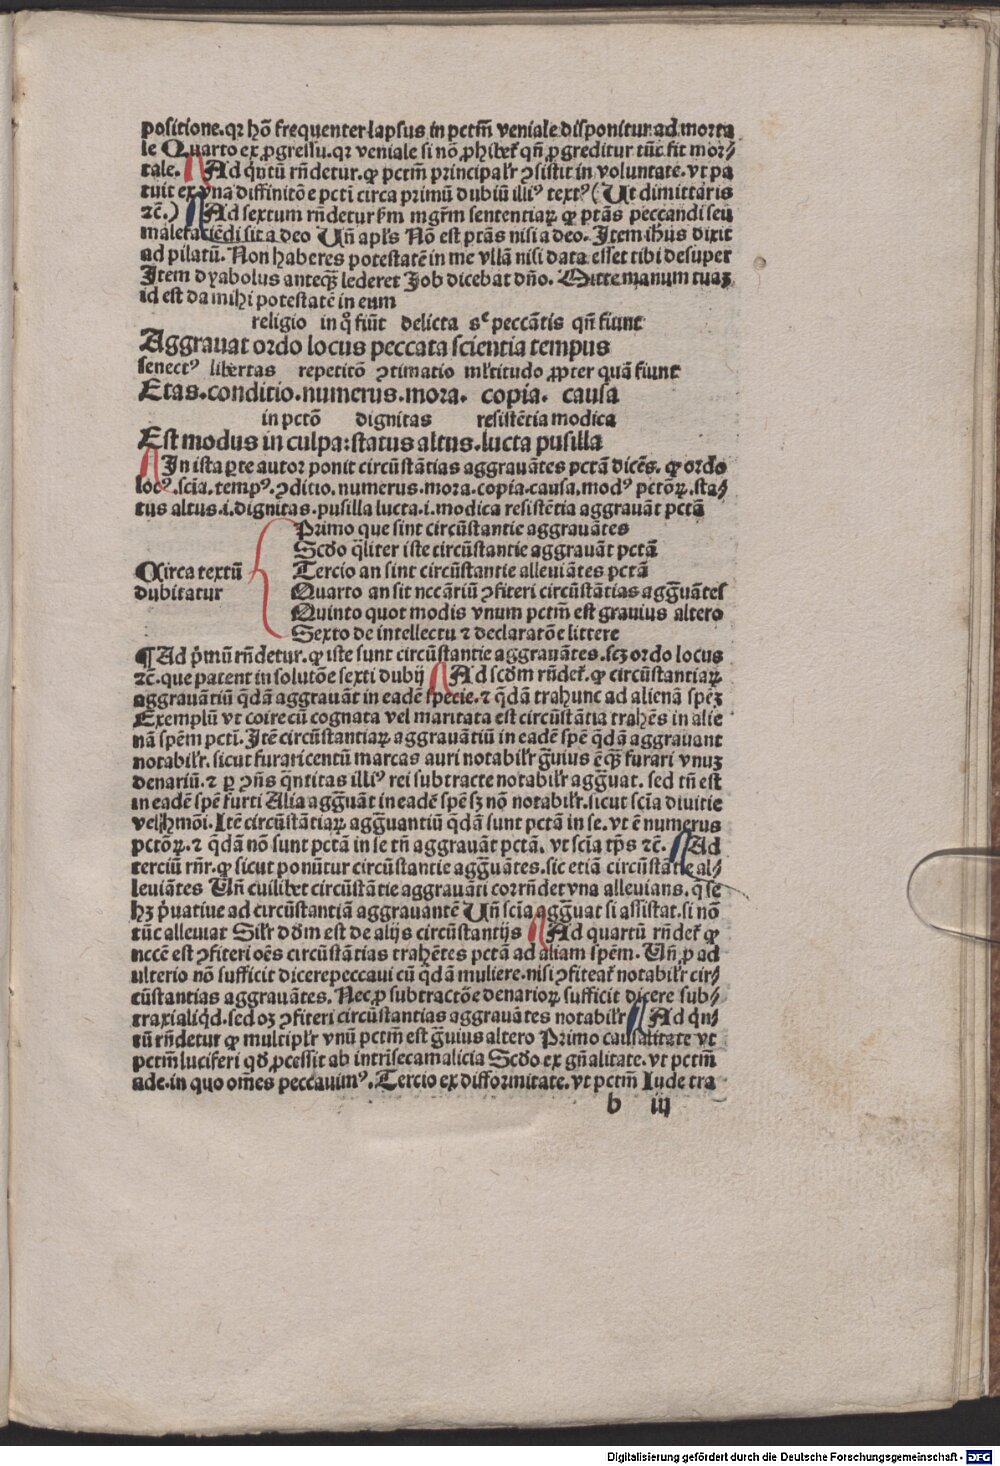 positione. qꝛ hō frequenter lapsus in pctm̄ veniale disponitur ad morta
le Quarto ex ꝓgressu. qꝛ veniale si nō ꝓhibet᷑ qn̄ ꝓgreditur tūc fit mor⸗
tale. Ad q̇ntū rn̄detur. ꝙ pctm̄ principalr̄ ꝯsistit in voluntate. vt pa
tuit ex vna diffinitōe pcti circa primū dubiū illiꝰ textꝰ (Ut dimittaris
ꝛc̄.) Ad sextum rn̄detur ẜm mgr̄m sententiaꝝ ꝙ ptās peccandi seu
malefaciēdi sit a deo Un̄ apl̄s Nō est ptās nisi a deo. Item ihūs dixit
ad pilatū. Non haberes potestatē in me vllā nisi data esset tibi desuper
Item dyabolus anteqꝫ lederet Job dicebat dn̄o. Mitte manum tuaꝫ
id est da mihi potestatē in eum
religio in q̊ fiūt delicta sᶜ peccātis qn̄ fiunt
Aggrauat ordo locus peccata scientia tempus
senectꝰ libertas repetitō ꝯtimatio ml̄titudo ꝓpter quā fiunt
Etas. conditio. numerus. mora. copia. causa
in pctō dignitas resistētia modica
Est modus in culpa: status altus. lucta pusilla
In ista ꝑte autor ponit circūstātias aggrauātes pctā dicēs. ꝙ ordo
locꝰ. scīa. tempꝰ. ꝯditio. numerus. mora. copia. causa. modꝰ pctōꝝ. sta⸗
tus altus. i. dignitas. pusilla lucta. i. modica resistētia aggrauāt pctā
Primo que sint circūstantie aggrauātes
Scd̄o q̄liter iste circūstantie aggrauāt pctā
Circa textū Tercio an sint circūstantie alleuiātes pctā
dubitatur Quarto an sit nccāriū ꝯfiteri circūstātias agg̃uātes
Quinto quot modis vnum pctm̄ est grauius altero
Sexto de intellectu ⁊ declaratōe littere
¶ Ad p̄mū rn̄detur. ꝙ iste sunt circūstantie aggrauātes. scꝫ ordo locus
ꝛc̄. que patent in solutōe sexti dubij Ad scd̄m rn̄det᷑. ꝙ circūstantiaꝝ
aggrauātiū q̄dā aggrauāt in eadē specie. ⁊ q̄dā trahunt ad alienā spēꝫ
Exemplū vt coire cū cognata vel maritata est circūstātia trahēs in alie
nā spēm pcti. Itē circūstantiaꝝ aggrauātiū in eadē spē q̄dā aggrauant
notabilr̄. sicut furari centū marcas auri notabilr̄ g̃uius ē qꝫ furari vnuꝫ
denariū. ⁊ ꝑ ꝯn̄s q̄ntitas illiꝰ rei subtracte notabilr̄ agg̃uat. sed tn̄ est
in eadē spē furti Alia agg̃uāt in eadē spē sꝫ nō notabilr̄. sicut scīa diuitie
vel hmōi. Itē circūstātiaꝝ agg̃uantiū q̄dā sunt pctā in se. vt ē numerus
pctōꝝ. ⁊ q̄dā nō sunt pctā in se tn̄ aggrauāt pctā. vt scīa tp̄s ꝛc̄. Ad
terciū rn̄r. ꝙ sicut ponūtur circūstantie agg̃uātes. sic etiā circūstātie al⸗
leuiātes Un̄ cuilibet circūstātie aggrauāti corrn̄det vna alleuians. q̄ se
hꝫ p̄uatiue ad circūstantiā aggrauantē Un̄ scīa agg̃uat si assistat. si nō
tūc alleuiat Silr̄ dd̄m est de alijs circūstantijs Ad quartū rn̄det᷑ ꝙ
nccē est ꝯfiteri oēs circūstātias trahētes pctā ad aliam spēm. Un̄ ꝓ ad
ulterio nō sufficit dicere peccaui cū q̄dā muliere. nisi ꝯfiteat᷑ notabilr̄ cir⸗
cūstantias aggrauātes. Nec ꝓ subtractōe denarioꝝ sufficit dicere sub⸗
traxi aliq̇d. sed oꝫ ꝯfiteri circūstantias aggrauātes notabilr̄ Ad q̇n⸗
tū rn̄detur ꝙ multiplr̄ vnū pctm̄ est g̃uius altero Primo causalitate vt
pctm̄ luciferi qd̄ ꝓcessit ab intrīseca malicia Scd̄o ex gn̄alitate. vt pctm̄
ade. in quo om̄es peccauimꝰ. Tercio ex difformitate. vt pctm̄ Iude tra
b iij
Digitalisierung gefördert durch die Deutsche Forschungsgemeinschaft - DFG